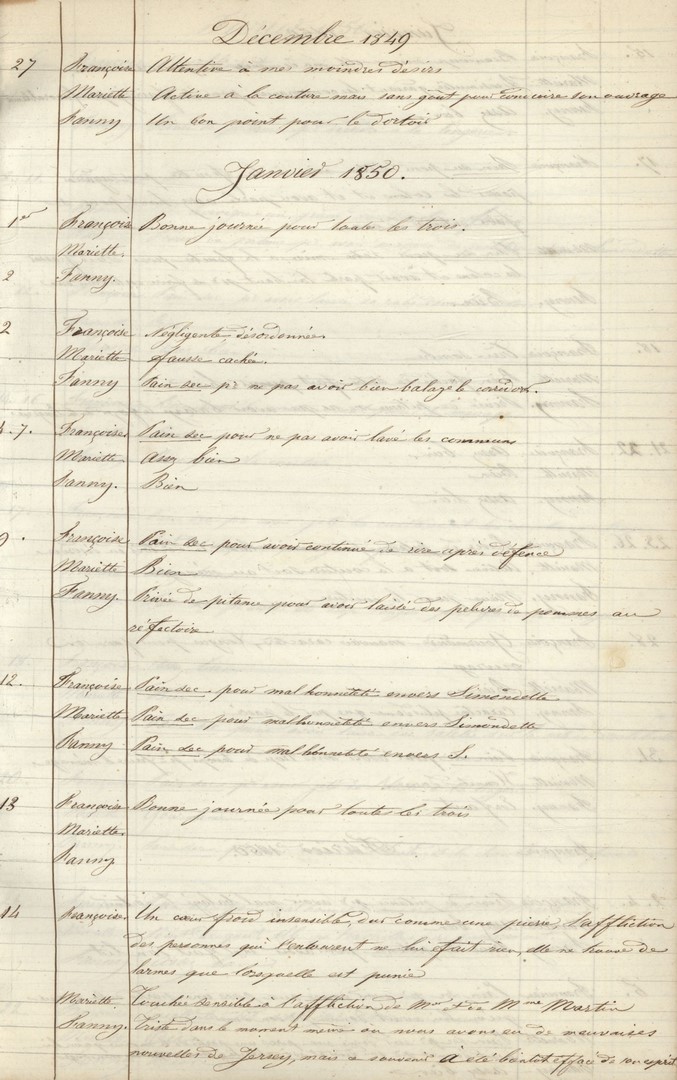 Décembre 1849
27 Françoise Attentive à mes moindres désirs
Mariette Active à la couture mais sans goût pour conduire son ouvrage
Fanny Un bon point pour le dortoir
Janvier 1850.
1er Françoise Bonne journée pour toutes les trois.
Mariette.
2 Fanny.
2 Françoise Négligente, désordonnée.
Mariette fausse cachée.
Fanny Pain sec pr ne pas avoir bien balayé le corridor.
7. Françoise. Pain sec pour ne pas avoir lavé les communs
Mariette. Assez bien
Fanny. Bien
9. Françoise Pain sec pour avoir continué de rire après défence
Mariette Bien
Fanny. Privée de pitance pour avoir laissé des pelures de pommes au
réfectoire
12. Françoise Pain sec pour malhonnêteté envers Simondette
Mariette Pain sec pour malhonnêteté envers Simondette
Fanny Pain sec pour malhonnêteté envers S.
13 Françoise Bonne journée pour toutes les trois
Mariette.
Fanny
14 Françoise. Un cœur froid insensible, dur comme une pierre, l'affliction
des personnes qui l'entourent ne lui fait rien, elle ne trouve de
larmes que lorsqu'elle est punie
Mariette. Touchée sensible à l'affliction de Mr et de Mme Martin
Fanny. Triste dans le moment même où nous avons eu de mauvaises
nouvelles de Jersey, mais ce souvenir a été bientôt effacé de son esprit